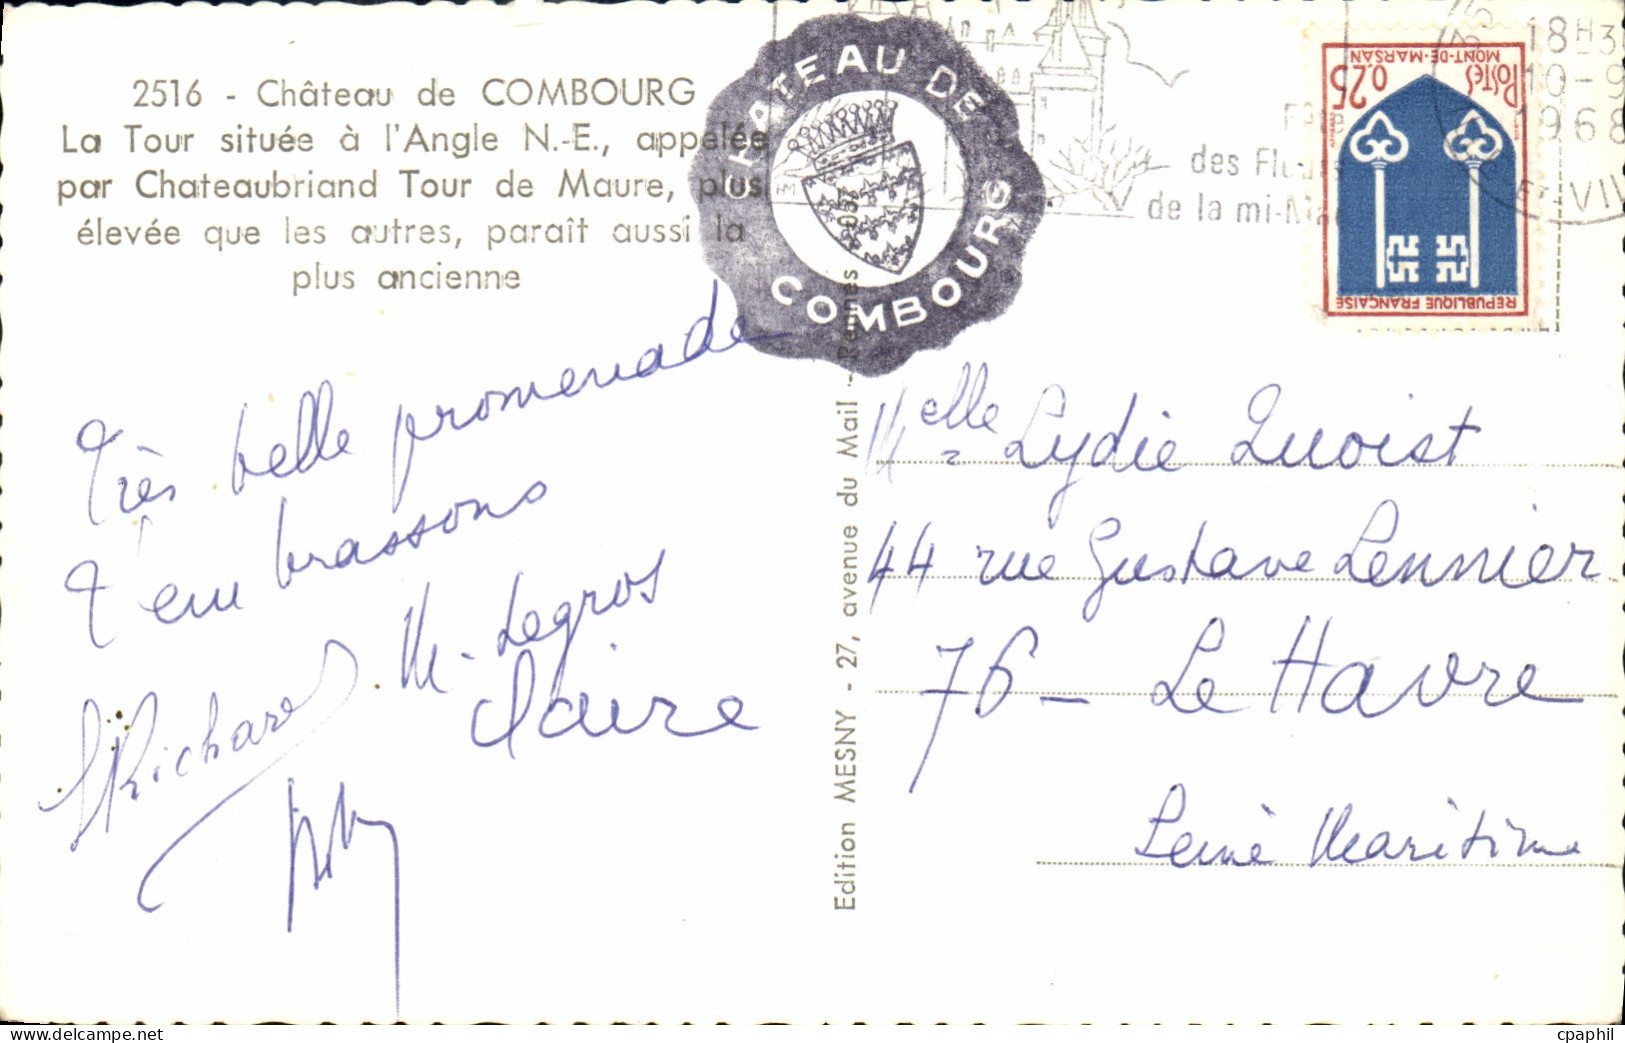 2516 - Château de COMBOURG
La Tour située à l'Angle N.-E., appelée
par Chateaubriand Tour de Maure, plus
élevée que les autres, paraît aussi la
plus ancienne
CHATEAU DE
COMBOURG
Fête
des Fleurs
de la mi-Mai
18H3
10-9
1968
ET VIL
POSTES
0,25
MONT-DE-MARSAN
REPUBLIQUE FRANÇAISE
Très belle promenade
T'embrassons
Richard M. Legros
Claire
Edition MESNY - 27, avenue du Mail - Rennes
Melle Lydie Quoist
44 rue Gustave Lennier
76 - Le Havre
Seine Maritime
cpaphil